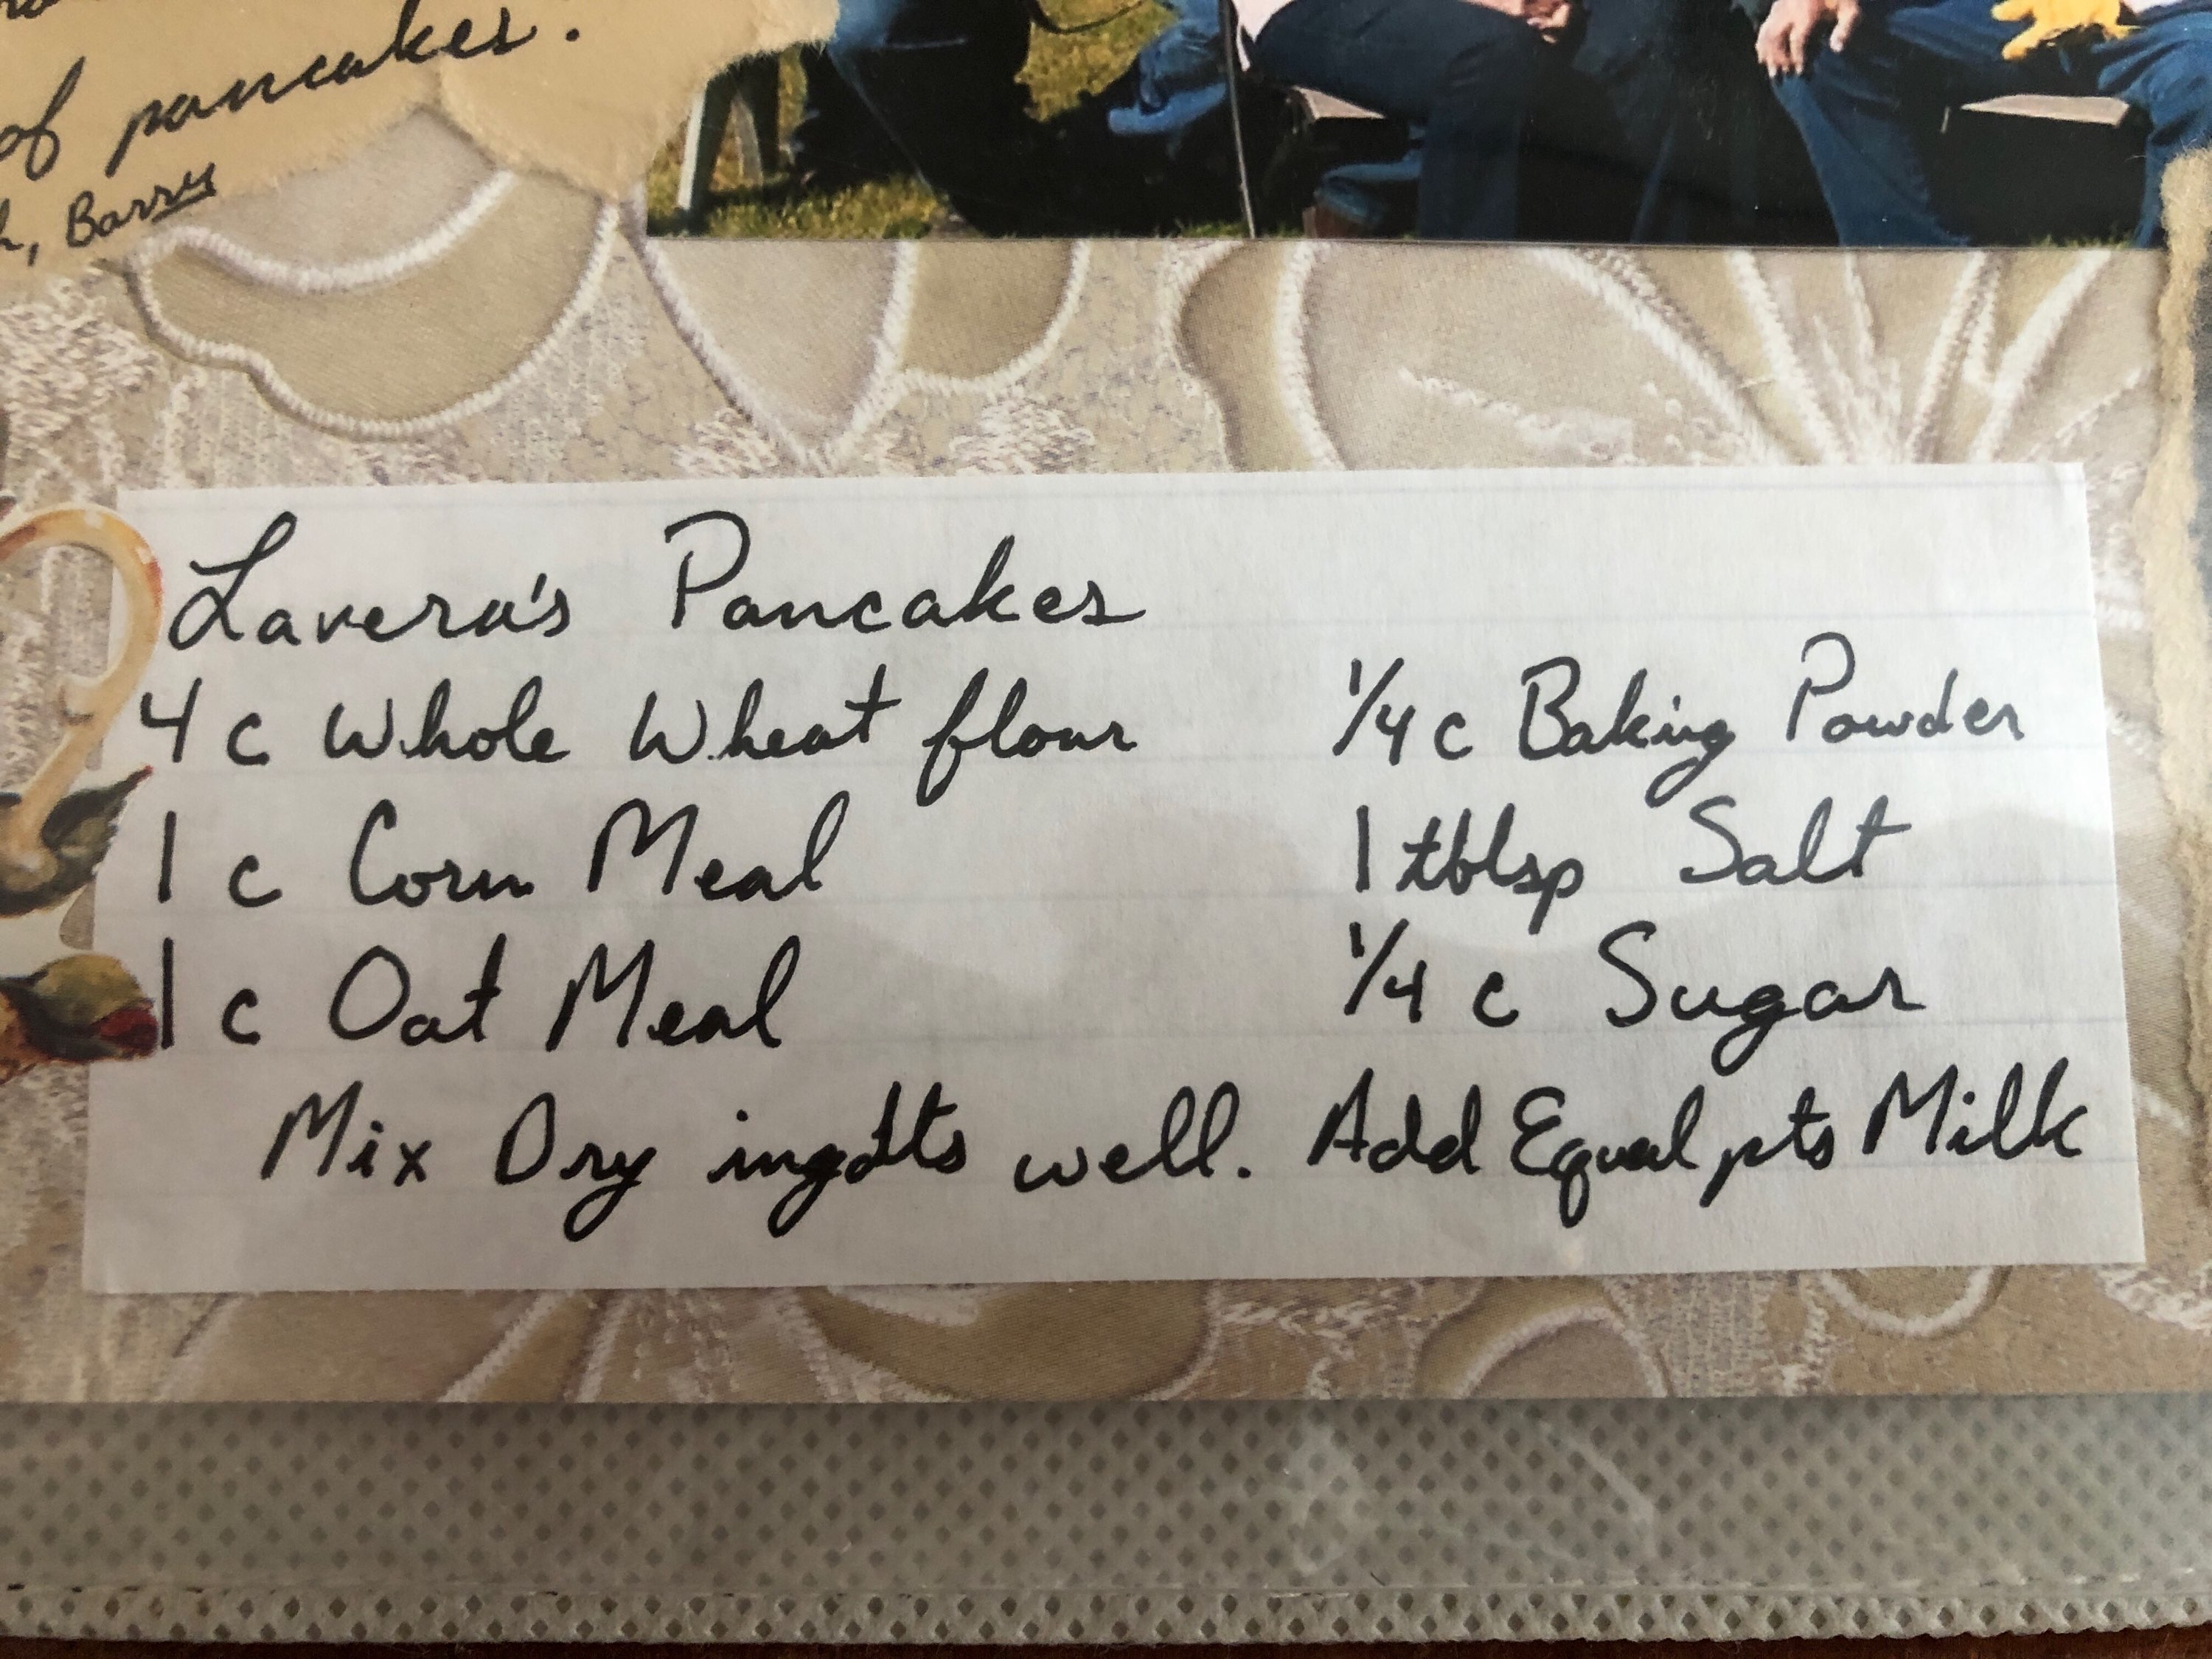 of pancakes.
Barry
Lavera's Pancakes
4 c Whole Wheat flour
1/4 c Baking Powder
1 c Corn Meal
1 tblsp Salt
1 c Oat Meal
1/4 c Sugar
Mix Dry ingdts well. Add Equal pts Milk